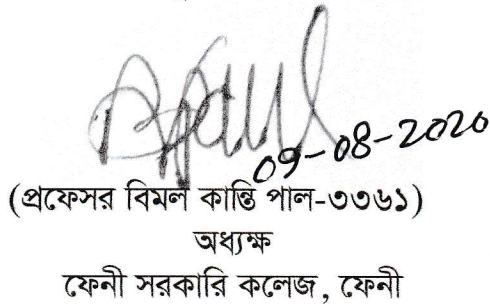 09-08-2020
(প্রফেসর বিমল কান্তি পাল-৩৩৬১)
অধ্যক্ষ
ফেনী সরকারি কলেজ, ফেনী